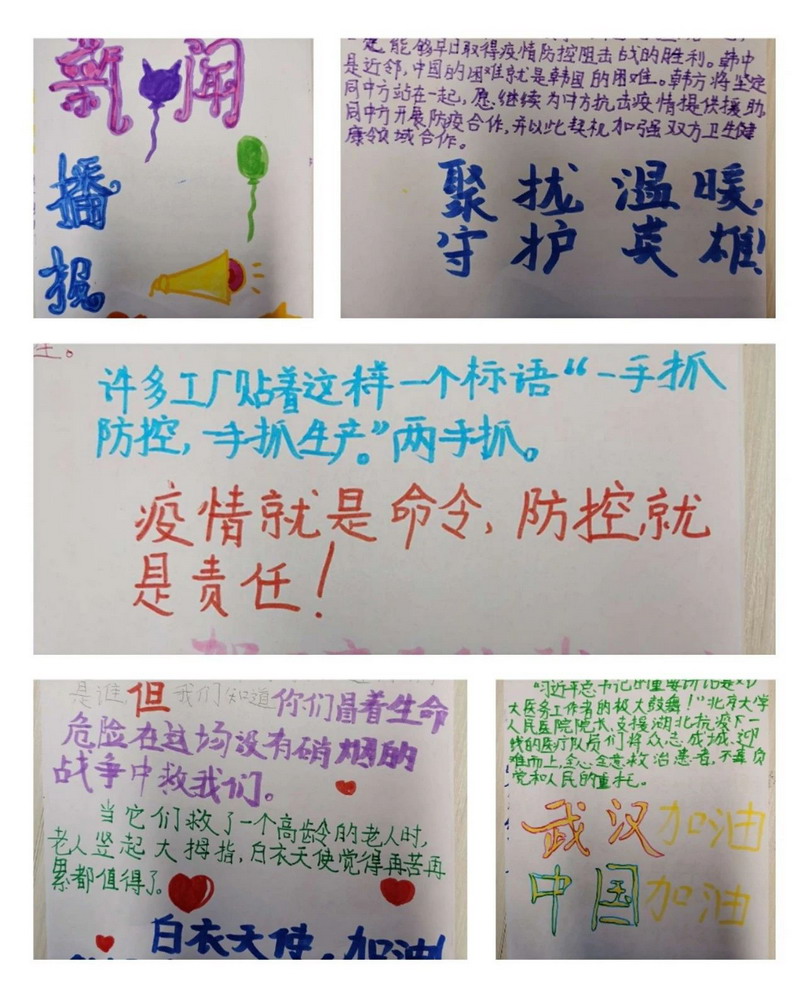 新闻
播
报
定能够早日取得疫情防控阻击战的胜利。韩中
是近邻,中国的困难就是韩国的困难。韩方将坚定
同中方站在一起,愿继续为中方抗击疫情提供援助,
同中方开展防疫合作,并以此契机加强双方卫生健
康领域合作。
聚拢温暖,
守护英雄!
生。
许多工厂贴着这样一个标语“一手抓
防控,一手抓生产。”两手抓。
疫情就是命令,防控就
是责任!
是谁但我们知道你们冒着生命
危险在这场没有硝烟的
战争中救我们。
当它们救了一个高龄的老人时,
老人竖起大拇指,白衣天使觉得再苦再
累都值得了。
白衣天使,加油!
“习近平总书记的重要讲话是对
大医务工作者的极大鼓舞!”北京大学
人民医院院长,支援湖北抗疫下一
线的医疗队员们将众志成城,迎
难而上,全心全意救治患者,不辜负
党和人民的重托。
武汉加油
中国加油